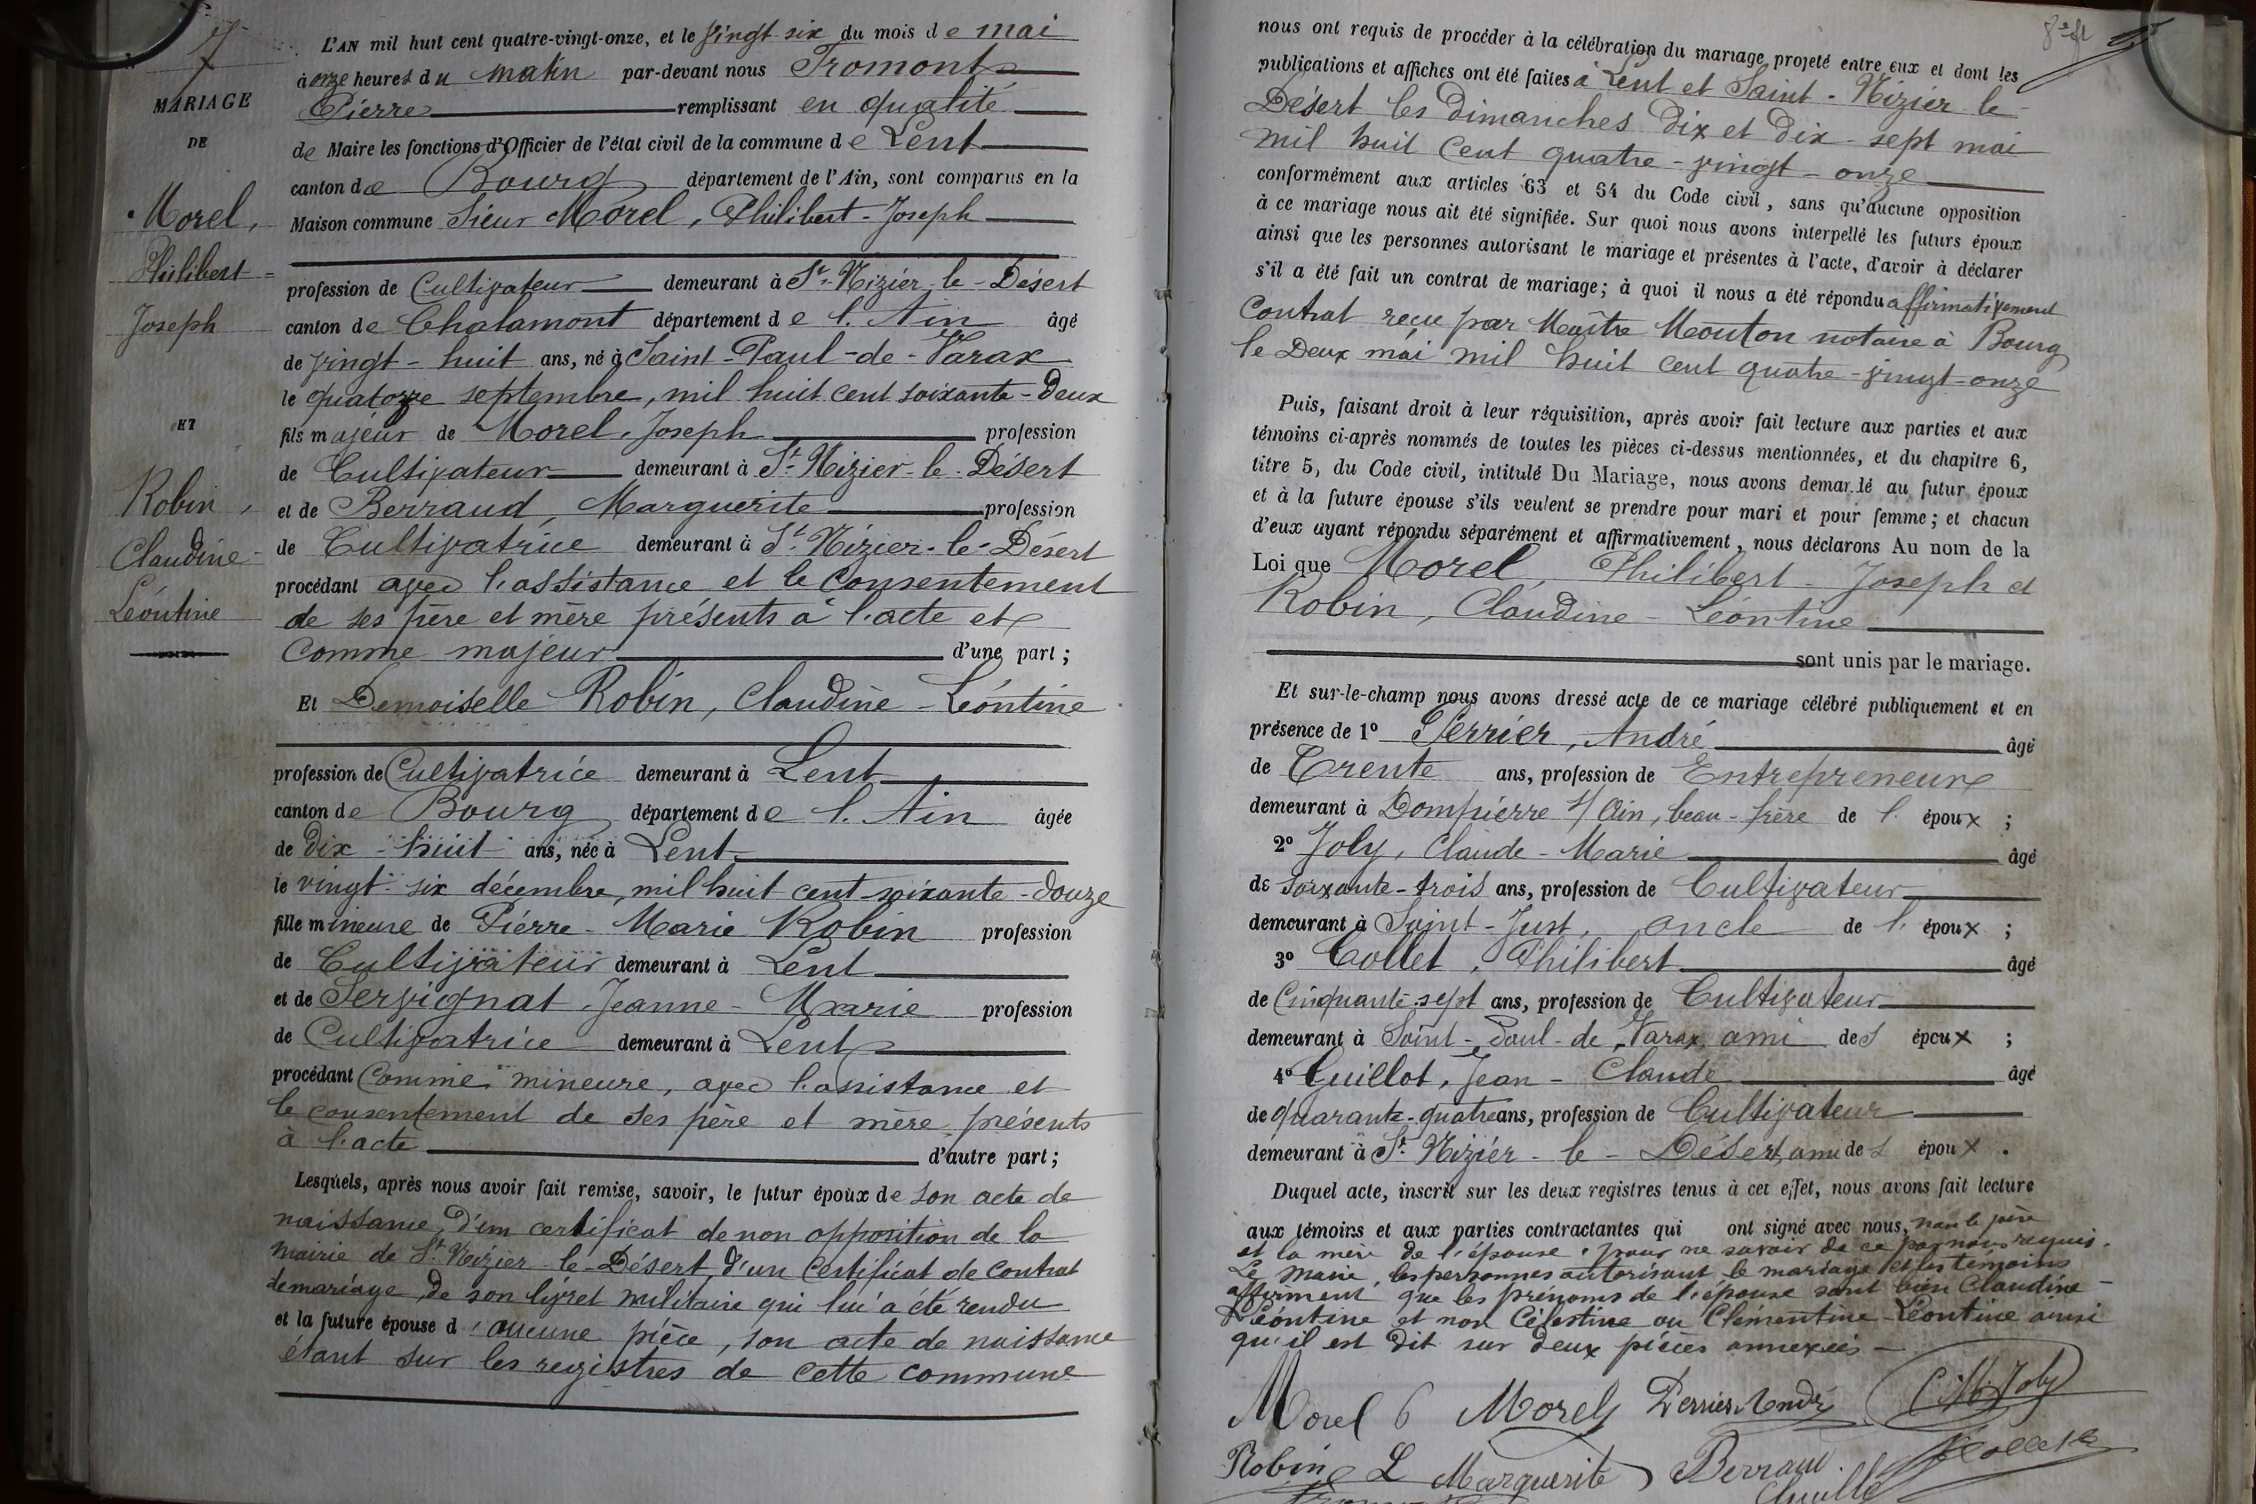 7
MARIAGE
DE
Morel,
Philibert-
Joseph
ET
Robin,
Claudine-
Léontine
L'AN mil huit cent quatre-vingt-onze, et le vingt-six du mois de mai
à onze heures du matin par-devant nous Fromont
Pierre remplissant en qualité
de Maire les fonctions d'Officier de l'état civil de la commune de Lent
canton de Bourg département de l'Ain, sont comparus en la
Maison commune Sieur Morel, Philibert-Joseph
profession de Cultivateur demeurant à St-Nizier-le-Désert
canton de Chalamont département de l'Ain âgé
de vingt-huit ans, né à Saint-Paul-de-Varax
le quatorze septembre, mil huit cent soixante-deux
fils majeur de Morel, Joseph profession
de Cultivateur demeurant à St-Nizier-le-Désert
et de Berraud, Marguerite profession
de Cultivatrice demeurant à St-Nizier-le-Désert
procédant avec l'assistance et le consentement
de ses père et mère présents à l'acte et
comme majeur d'une part;
Et Demoiselle Robin, Claudine-Léontine
profession de Cultivatrice demeurant à Lent
canton de Bourg département de l'Ain âgée
de dix-huit ans, née à Lent
le vingt-six décembre, mil huit cent soixante-douze
fille mineure de Pierre-Marie Robin profession
de Cultivateur demeurant à Lent
et de Servignat, Jeanne-Marie profession
de Cultivatrice demeurant à Lent
procédant comme mineure, avec l'assistance et
le consentement de ses père et mère présents
à l'acte d'autre part;
Lesquels, après nous avoir fait remise, savoir, le futur époux de son acte de
naissance, d'un certificat de non opposition de la
mairie de St-Nizier-le-Désert, d'un certificat de contrat
de mariage, de son livret militaire qui lui a été rendu
et la future épouse d'aucune pièce, son acte de naissance
étant sur les registres de cette commune
nous ont requis de procéder à la célébration du mariage projeté entre eux et dont les
publications et affiches ont été faites à Lent et Saint-Nizier-le-
Désert les dimanches dix et dix-sept mai
mil huit cent quatre-vingt-onze
conformément aux articles 63 et 64 du Code civil, sans qu'aucune opposition
à ce mariage nous ait été signifiée. Sur quoi nous avons interpellé les futurs époux
ainsi que les personnes autorisant le mariage et présentes à l'acte, d'avoir à déclarer
s'il a été fait un contrat de mariage; à quoi il nous a été répondu affirmativement
Contrat reçu par Maître Mouton notaire à Bourg
le deux mai mil huit cent quatre-vingt-onze
Puis, faisant droit à leur réquisition, après avoir fait lecture aux parties et aux
témoins ci-après nommés de toutes les pièces ci-dessus mentionnées, et du chapitre 6,
titre 5, du Code civil, intitulé Du Mariage, nous avons demandé au futur époux
et à la future épouse s'ils veulent se prendre pour mari et pour femme; et chacun
d'eux ayant répondu séparément et affirmativement, nous déclarons Au nom de la
Loi que Morel, Philibert-Joseph et
Robin, Claudine-Léontine
sont unis par le mariage.
Et sur-le-champ nous avons dressé acte de ce mariage célébré publiquement et en
présence de 1° Perrier, André âgé
de Trente ans, profession de Entrepreneur
demeurant à Dompierre s/ Ain, beau-frère de l'époux;
2° Joly, Claude-Marie âgé
de soixante-trois ans, profession de Cultivateur
demeurant à Saint-Just, oncle de l'époux;
3° Collet, Philibert âgé
de Cinquante-sept ans, profession de Cultivateur
demeurant à Saint-Paul-de-Varax, ami des époux;
4° Guillot, Jean-Claude âgé
de quarante-quatre ans, profession de Cultivateur
demeurant à St-Nizier-le-Désert, ami des époux.
Duquel acte, inscrit sur les deux registres tenus à cet effet, nous avons fait lecture
aux témoins et aux parties contractantes qui ont signé avec nous, non le père
et la mère de l'épouse, pour ne savoir de ce par nous requis.
Le Maire, les personnes autorisant le mariage et les témoins
affirment que les prénoms de l'épouse sont bien Claudine-
Léontine et non Célestine ou Clémentine-Léontine ainsi
qu'il est dit sur deux pièces annexées
Morel Morel Perrier André C. M. Joly
Robin L Marguerite Berraud Collet